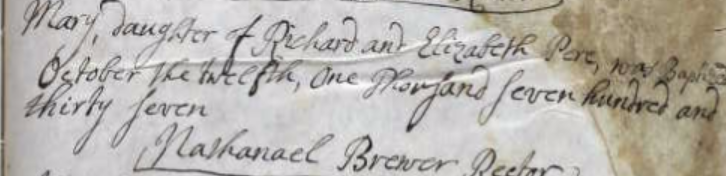 Mary, daughter of Richard and Elizabeth Pere, was Baptized
October the twelfth, One Thousand Seven hundred and
thirty seven
Nathanael Brewer Rector